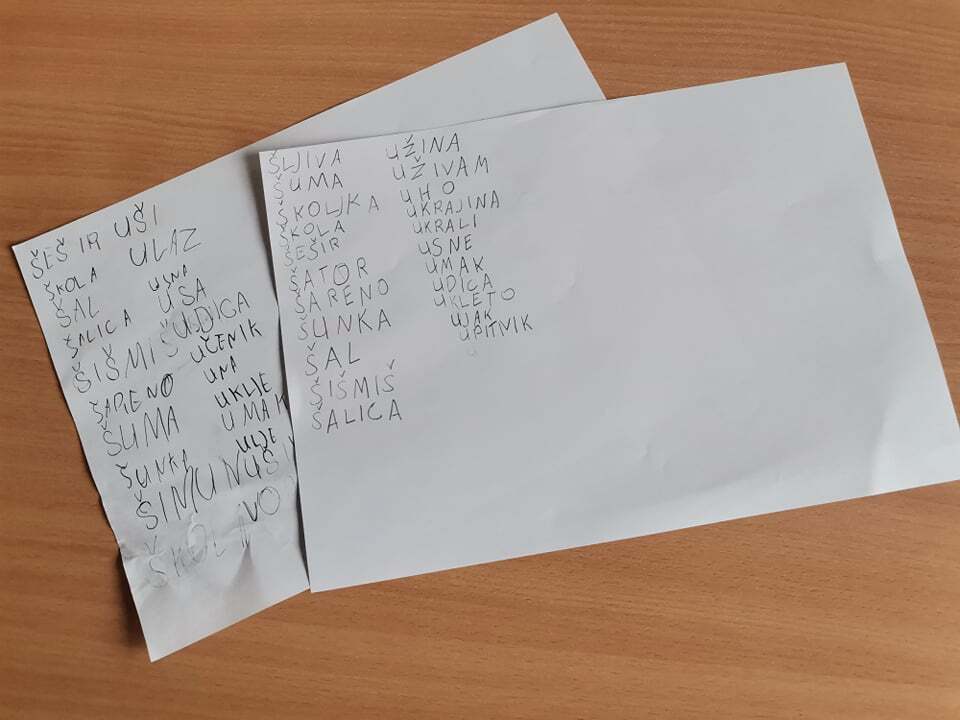 ŠEŠIR UŠI
ŠKOLA ULAZ
ŠAL USNA
ŠALICA USA
ŠIŠMIŠ UDICA
ŠARENO UČENIK
ŠUMA UNA
ŠUNKA UKLJE
UMAK
ULJE
ŠLJIVA UŽINA
ŠUMA UŽIVAM
ŠKOLJKA UHO
ŠKOLA UKRAJINA
ŠEŠIR UKRALI
ŠATOR USNE
ŠARENO UMAK
ŠUNKA UDICA
ŠAL UKLETO
ŠIŠMIŠ UJAK
ŠALICA UPITNIK